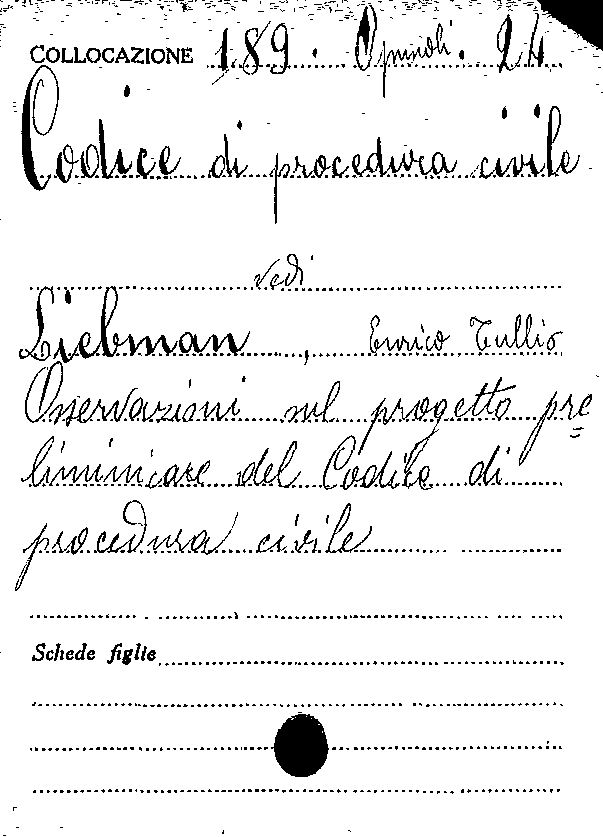 COLLOCAZIONE 189. Opuscoli. 24
Codice di procedura civile
vedi
Liebman, Enrico Tullio
Osservazioni sul progetto pre=
liminare del Codice di
procedura civile
Schede figlie